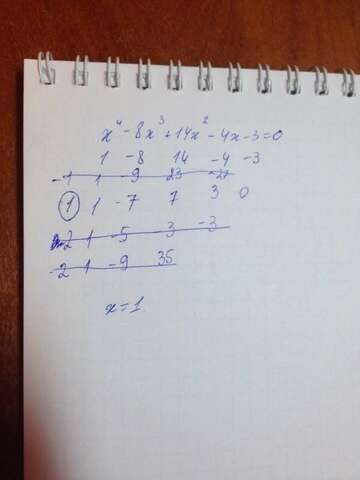 x⁴-8x³+14x²-4x-3=0
1 -8 14 -4 -3
-1 1 -9 23 -27
1 1 -7 7 3 0
2 1 -5 -3 -3
-2 1 -9 35
x=1